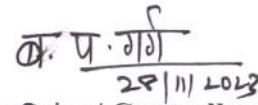 ब. प. गर्ग
28/11/2023